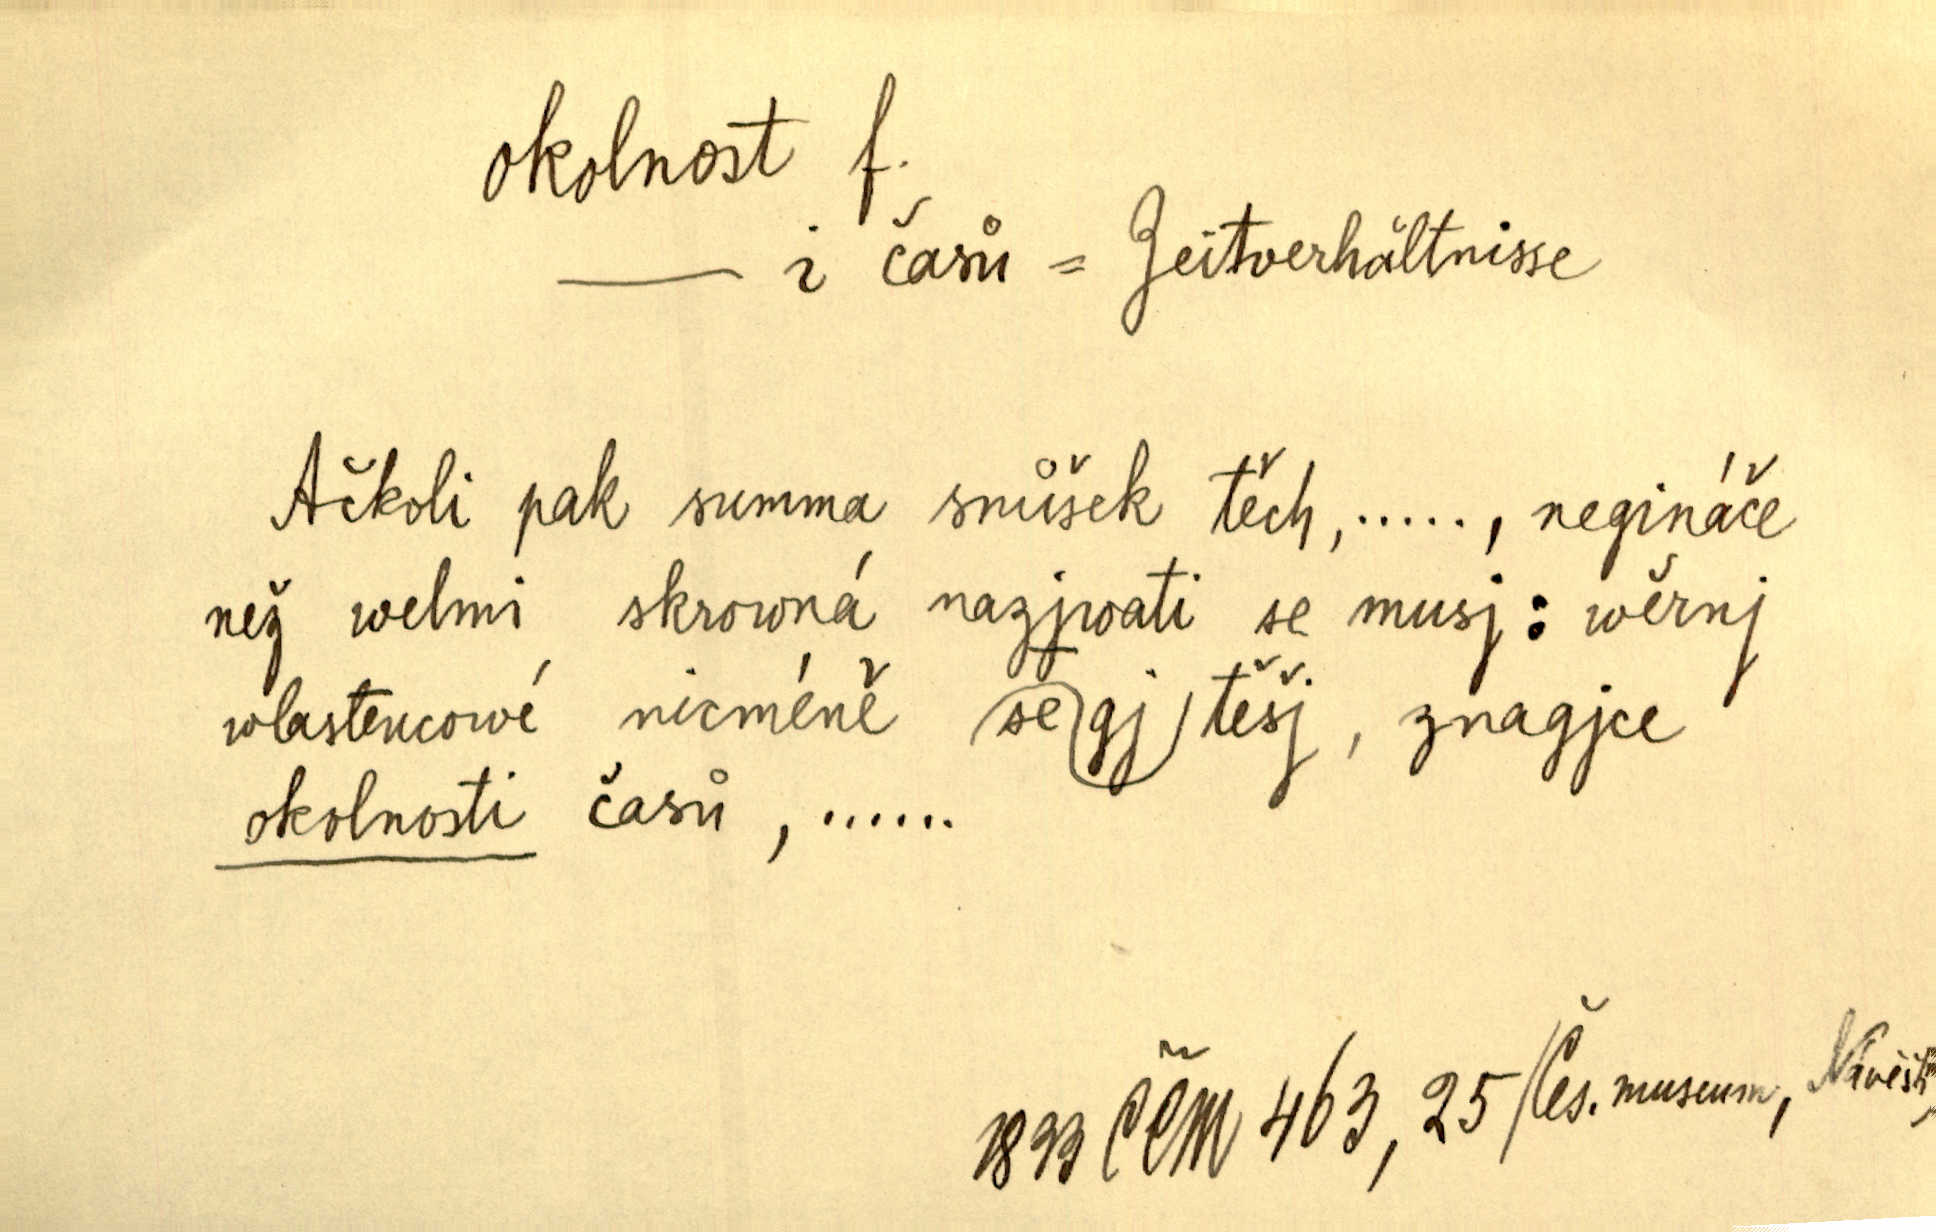 okolnost f.
—— i časů = Zeitverhältnisse
Ačkoli pak summa snůšek těch, ....., negináče
než welmi skrowná nazjwati se musj: wěrnj
wlastencowé nicméně se gj těšj, znagjce
okolnosti časů, ......
ČČM 463, 25 /Čes. museum,